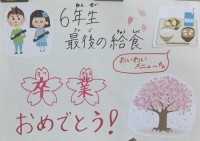 6年生
最後の給食
おいわいメニューです
卒業
おめでとう!